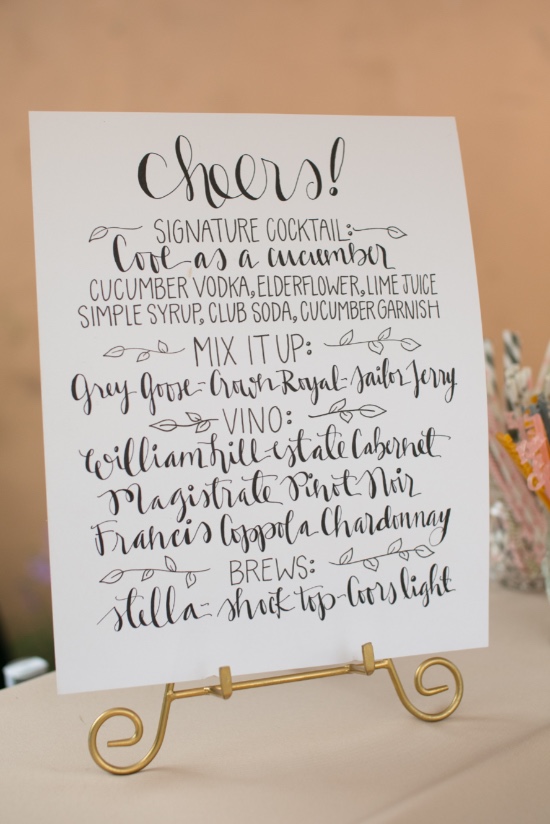 cheers!
SIGNATURE COCKTAIL:
Cool as a cucumber
CUCUMBER VODKA, ELDERFLOWER, LIME JUICE
SIMPLE SYRUP, CLUB SODA, CUCUMBER GARNISH
MIX IT UP:
Grey Goose - Crown Royal - Sailor Jerry
VINO:
William hill estate Cabernet
Magistrate Pinot Noir
Francis Coppola Chardonnay
BREWS:
stella - shock top - Coors light